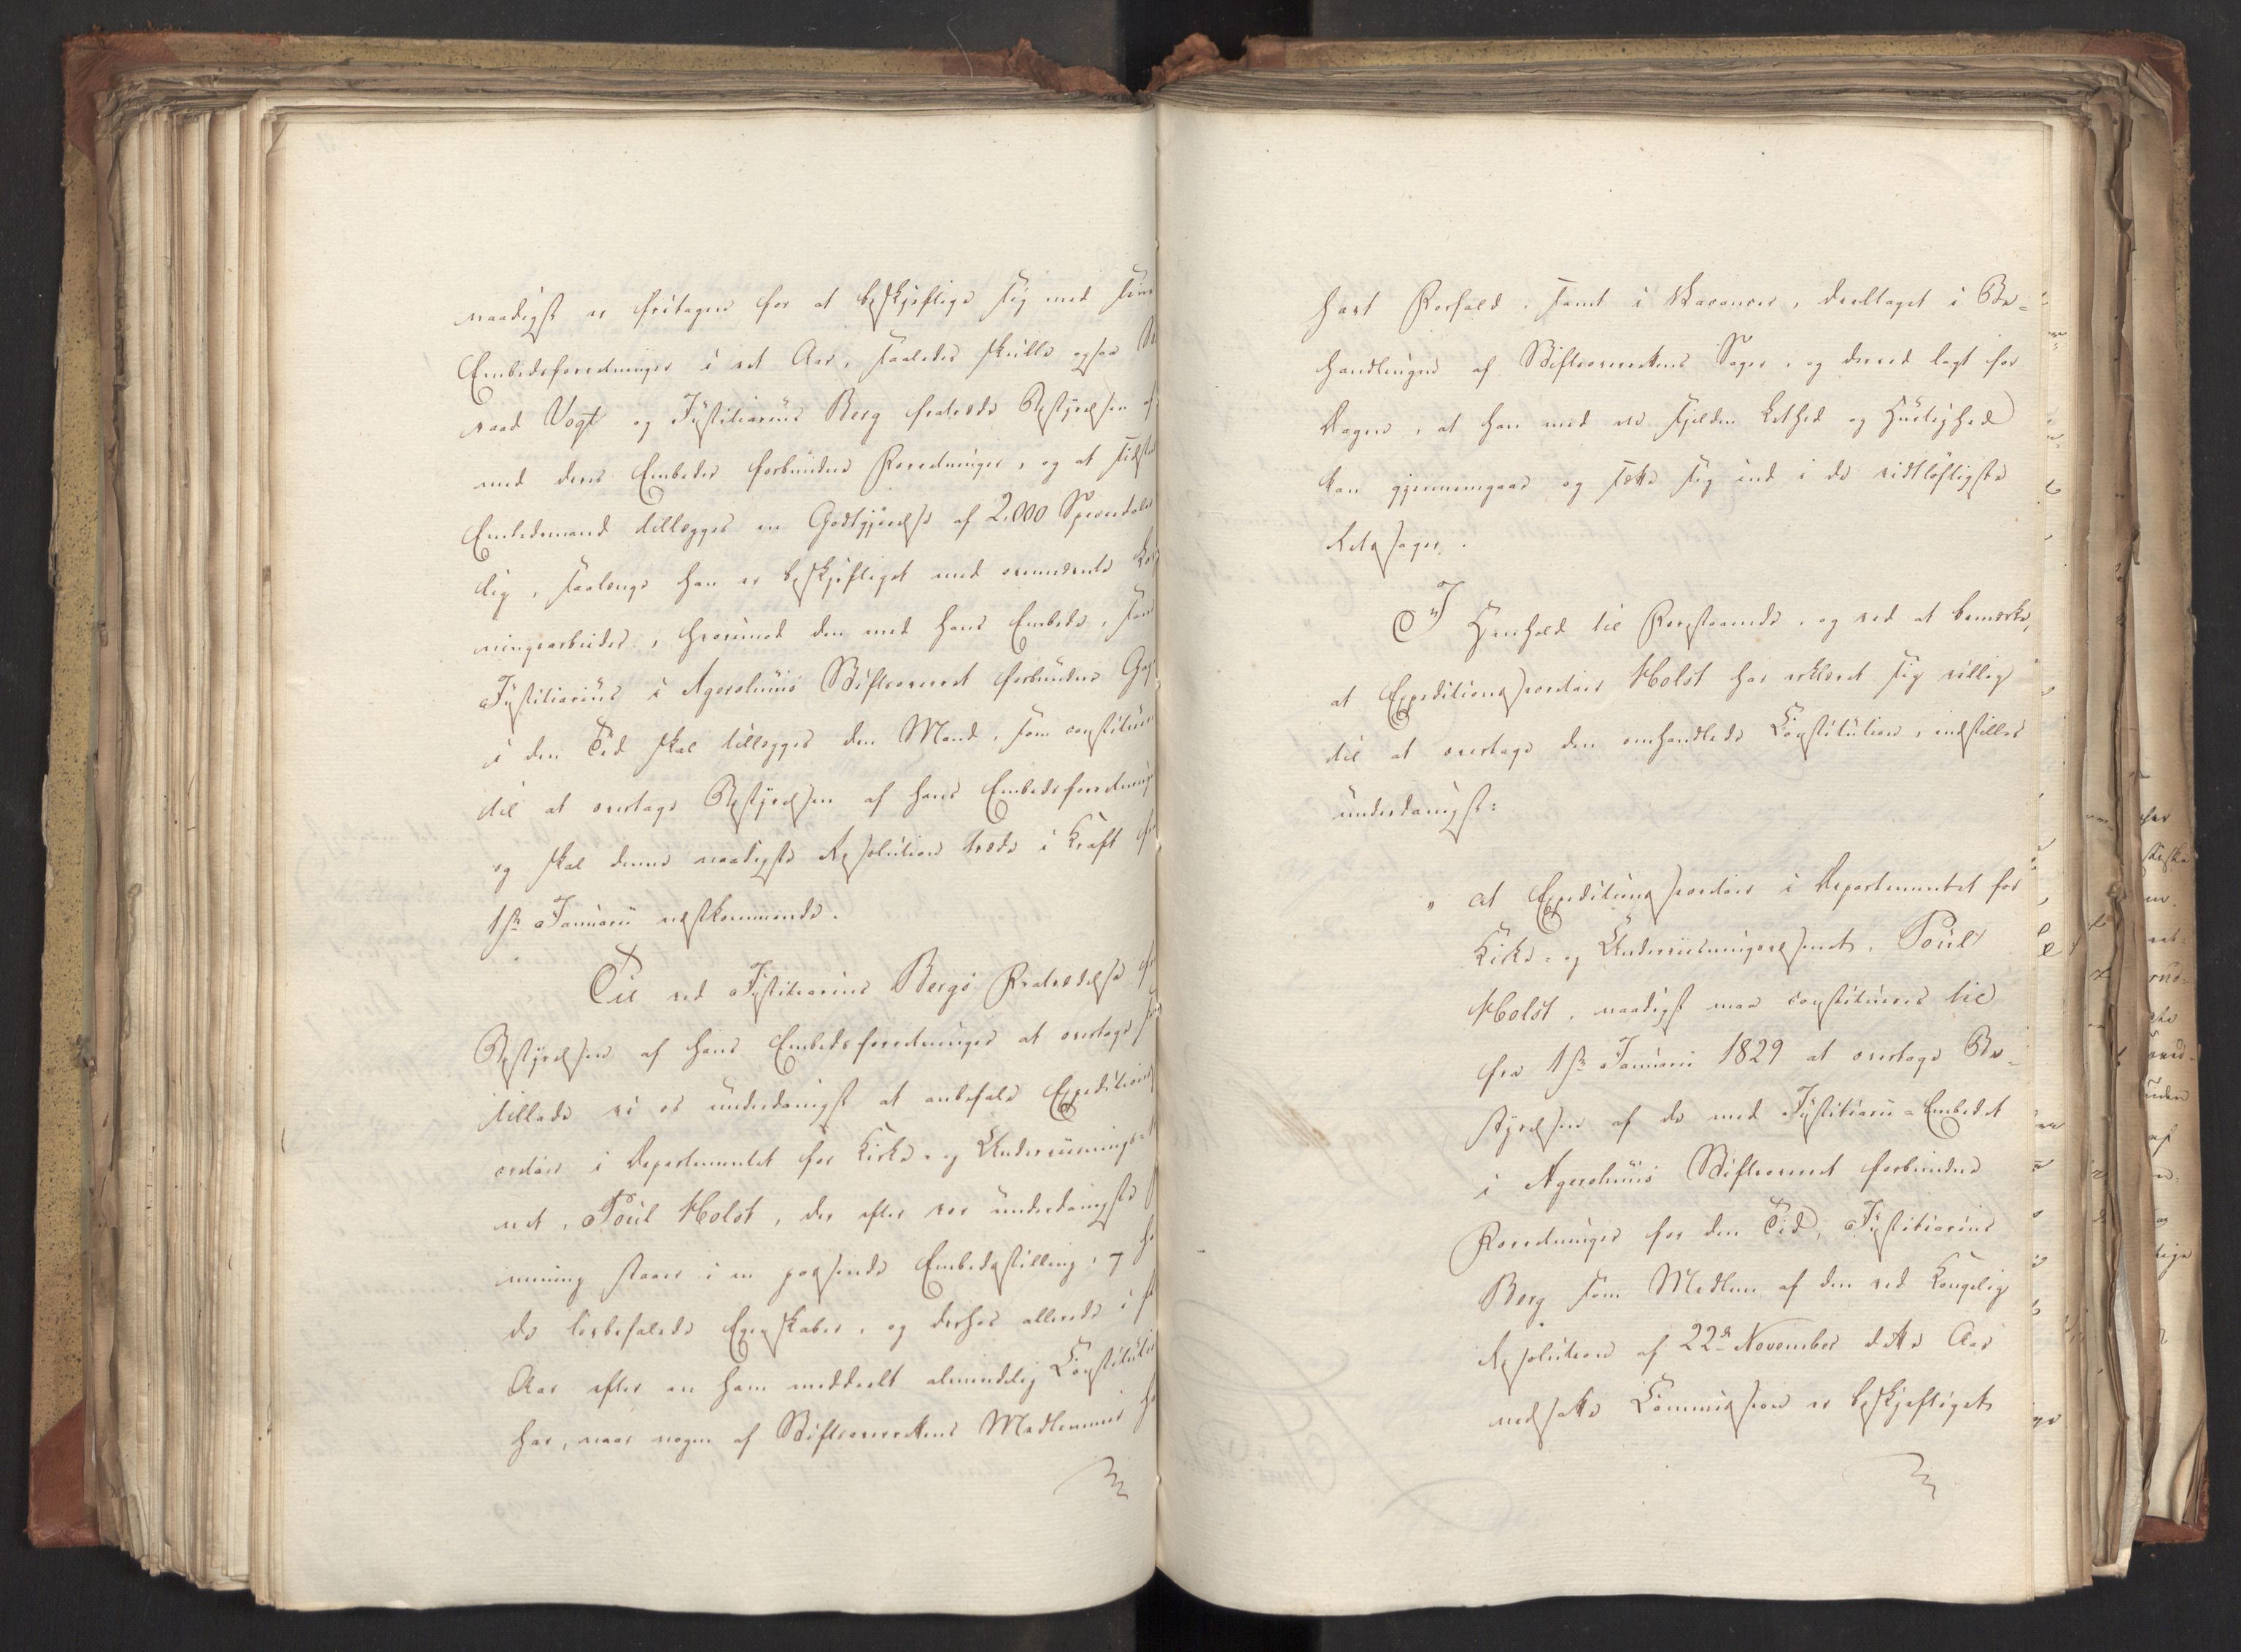 naadigst er fritagen for at beskjeftige sig med sine
Embedsforretninger i eet Aar, saaledes skulle ogsaa
raad Vogt og Justitiarius Berg fratræde Bestyrelsen af
med deres Embeder forbundne Forretninger, og at sidste
Embedsmand tillægges en Godtgjørelse af 2,000 Speciedaler
lig, saalænge han er beskjeftiget med ovennævnte
ningsarbeider, hvorimod den med hans Embede, som
Justitiarius i Agershuus Stiftsoverret forbundne
i den Tid skal tillægges den Mand, som constitue
til at overtage Bestyrelsen af hans Embedsforretninge
og skal denne naadigste Resolution træde i Kraft
1ste Januarii næstkommende.
Til ved Justitiarius Bergs Fratrædelse
Bestyrelsen af hans Embedsforretninger at overtage
tillade vi os underdanigst at anbefale Expeditions
cretair i Departementet for Kirke- og Underviisnings-
net, Poul Holst, der efter vor underdanigste
mening staaer i en passende Embedsstilling, og
de lovbefalede Egenskaber, og derhos allerede i
Aar efter en ham meddeelt almindelig Constitution
har, naar nogen af Stiftsoverrettens Medlemmer
havt Forfald, samt i Vacancer, deeltaget i Be-
handlingen af Stiftsoverrettens Sager, og derved lagt for
Dagen, at han med en sjelden Lethed og Hurtighed
kan gjennemgaae og sætte sig ind i de vidtløftigste
Retssager.
I Henhold til Forestaaende, og ved at bemærke,
at Expeditionssecretair Holst har erklæret sig villig
til at overtage den omhandlede Constitution, indstilles
underdanigst:
" at Expeditionssecretair i Departementet for
Kirke- og Underviisningsvæsenet, Poul
Holst, naadigst maa constitueres til
fra 1ste Januarii 1829 at overtage Be-
styrelsen af de med Justitiarii-Embedet
i Agershuus Stiftsoverret forbundne
Forretninger for den Tid, Justitiarius
Berg som Medlem af den ved Kongelig
Resolution af 22de November dette Aar
nedsatte Commission er beskjeftiget